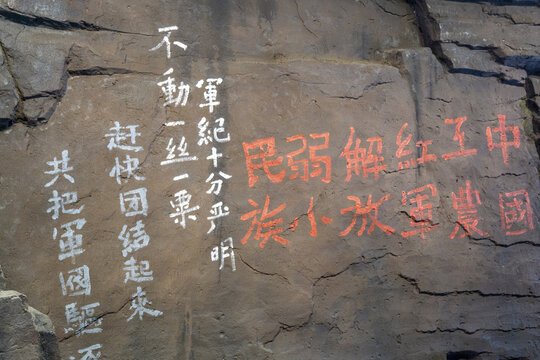 中國
工農
紅軍
解放
弱小
民族
軍紀十分严明
不動一丝一粟
赶快团结起来
共把軍閥驅